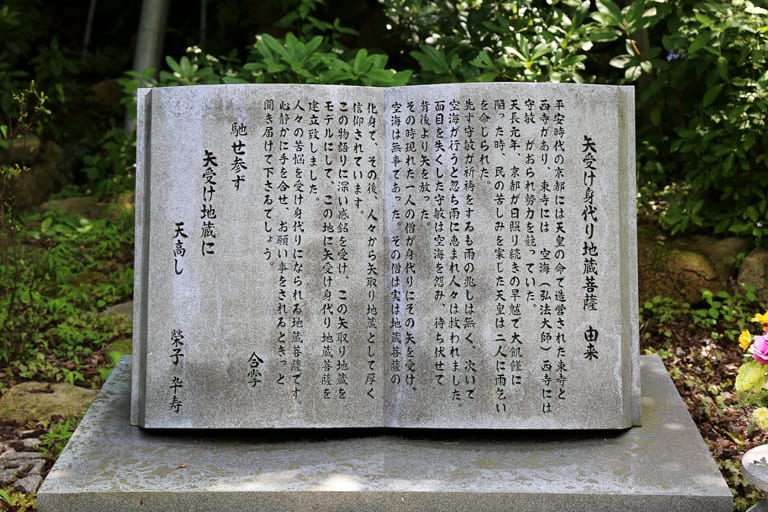 矢受け身代り地蔵菩薩 由来
平安時代の京都には天皇の命で造営された東寺と
西寺があり、東寺には 空海(弘法大師)西寺には
守敏 がおられ勢力を競っていた。
天長元年、京都が日照り続きの旱魃で大飢饉に
陥った時、民の苦しみを案じた天皇は二人に雨乞い
を命じられた。
先ず守敏が祈祷をするも雨の兆しは無く、次いで
空海が行うと忽ち雨に恵まれ人々は救われました。
面目を失くした守敏は空海を怨み、待ち伏せて
背後より矢を放った。
その時現れた一人の僧が身代りにその矢を受け、
空海は無事であった。その僧は実は地蔵菩薩の
化身で、その後、人々から矢取り地蔵として厚く
信仰されています。
この物語りに深い感銘を受け、この矢取り地蔵を
モデルにして、この地に矢受け身代り地蔵菩薩を
建立致しました。
人々の苦悩を受け身代りになられる地蔵菩薩です
心静かに手を合せ、お願い事をされるときっと
聞き届けて下さるでしょう。
合掌
馳せ参ず
矢受け地蔵に
天高し
榮子 卒寿